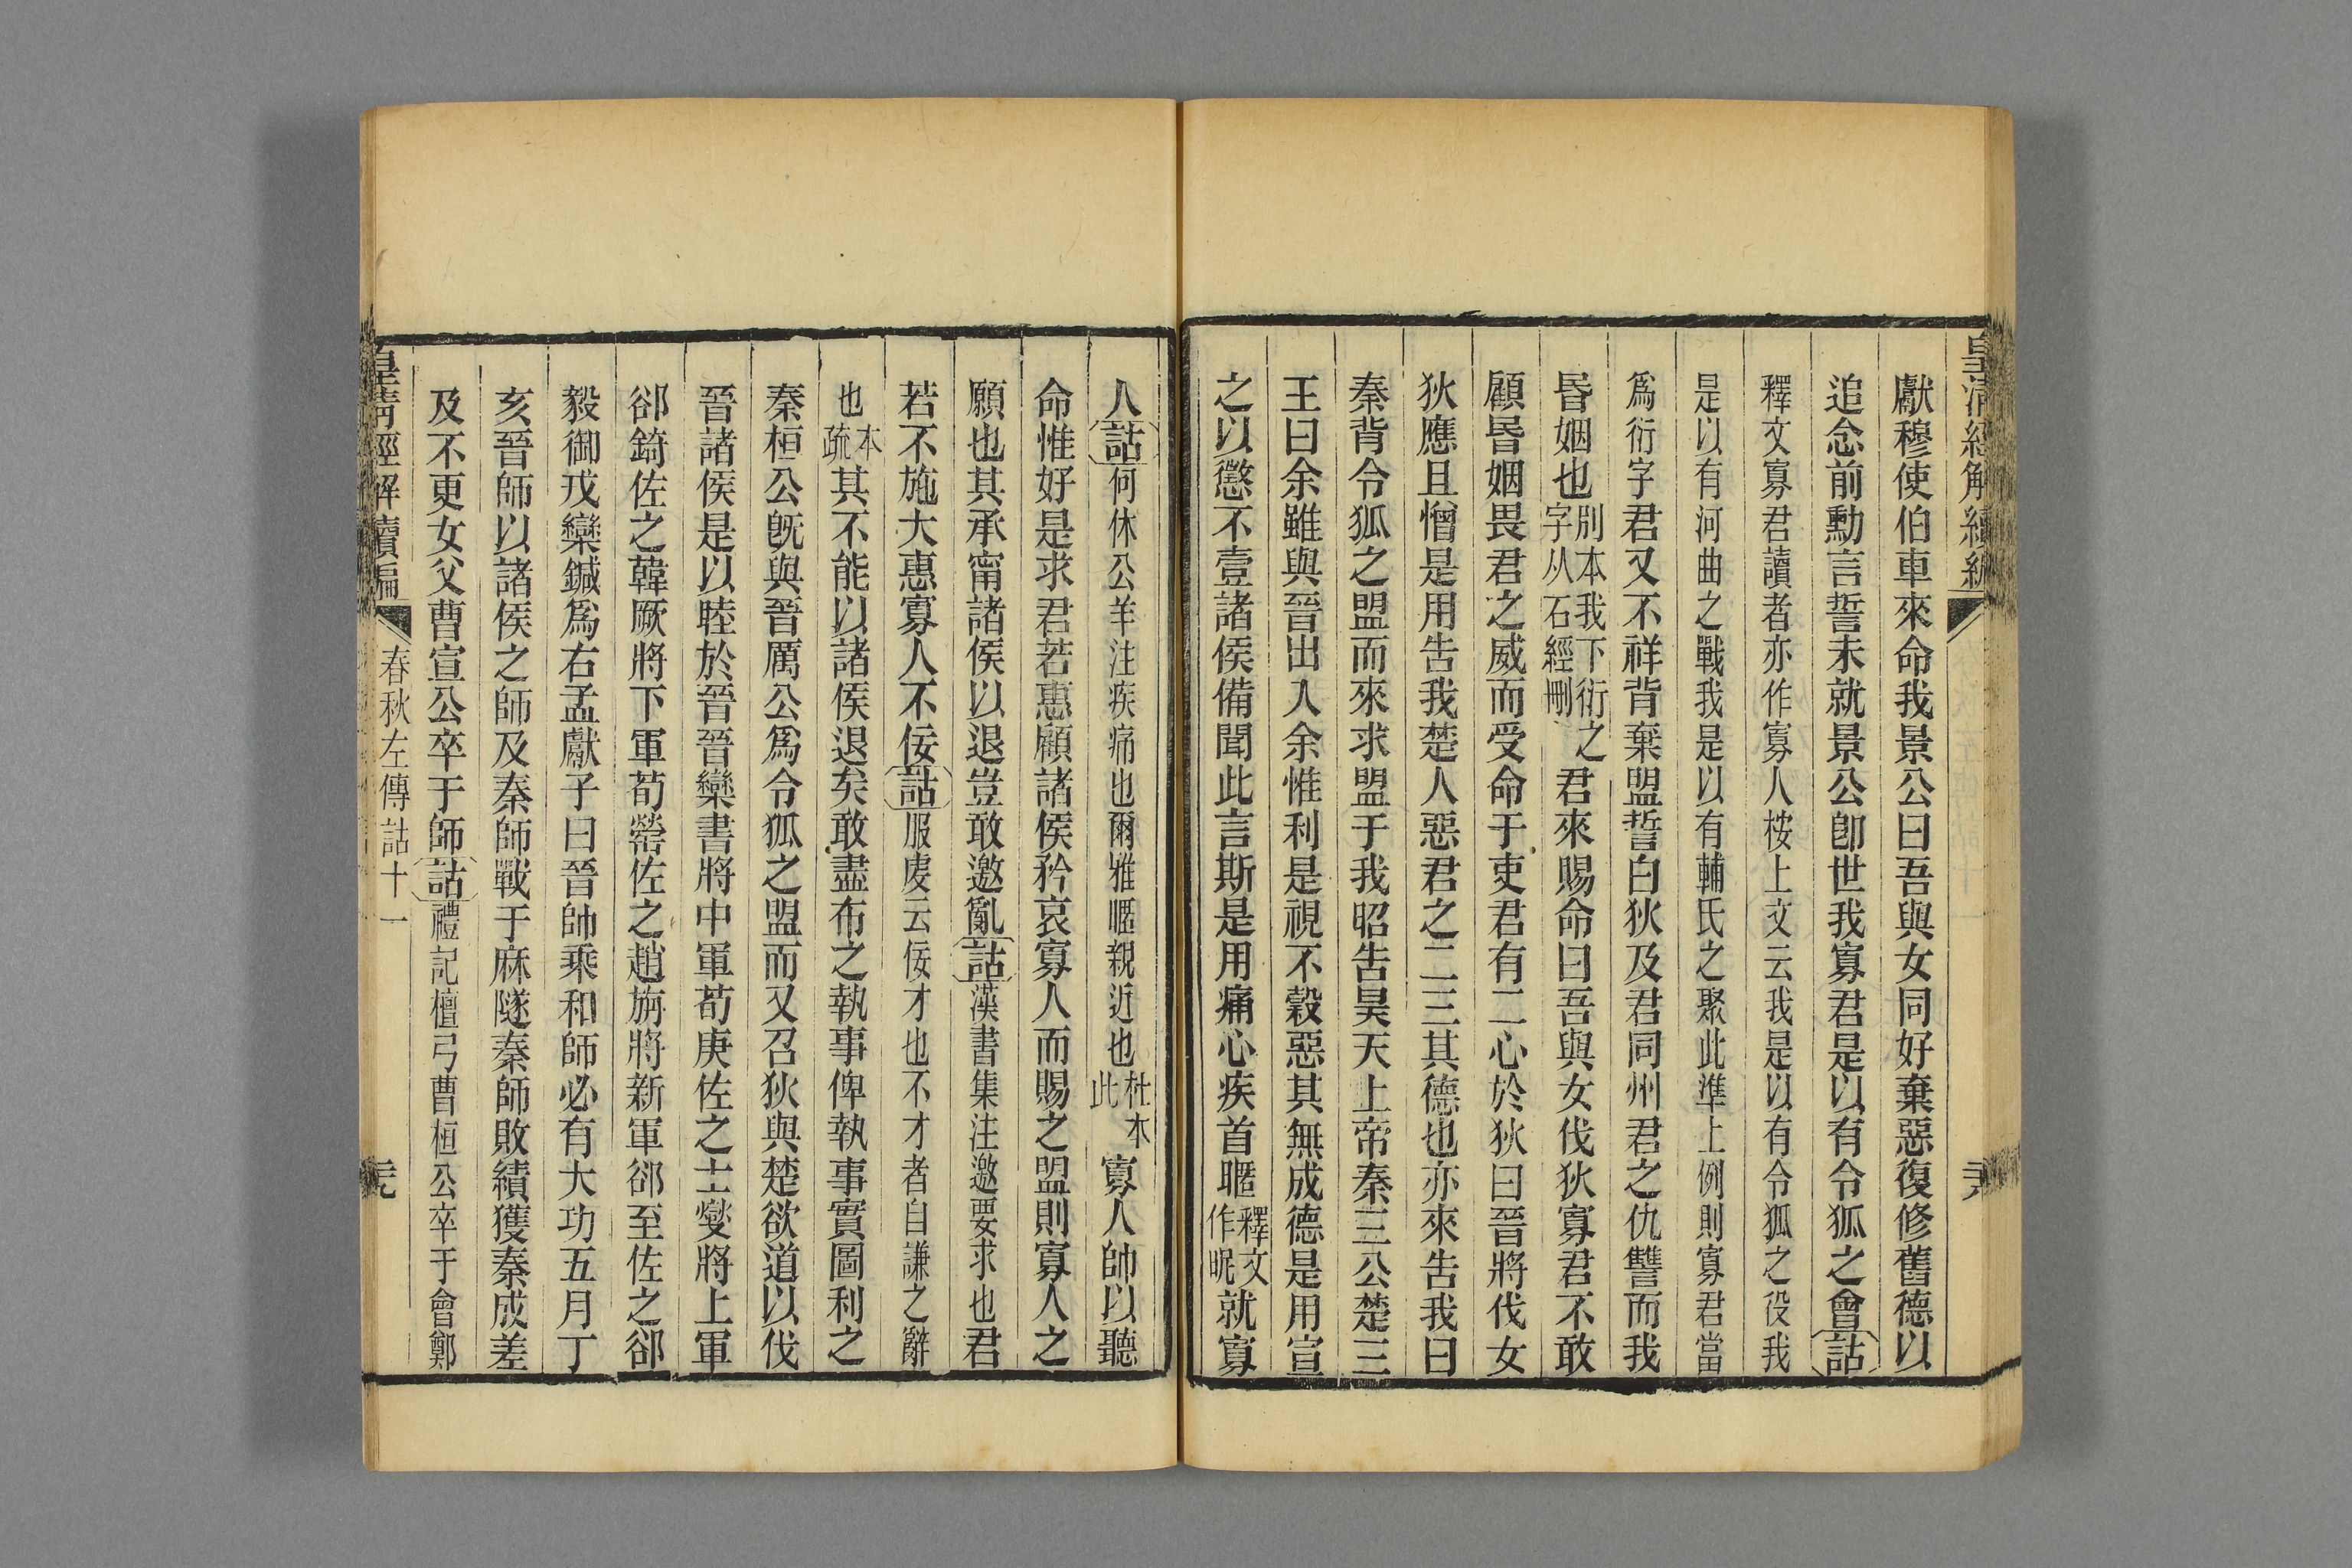 皇清經解續編
獻穆使伯車來命我景公曰吾與女同好棄惡復修舊德以
追念前勳言誓未就景公卽世我寡君是以有令狐之會詁
釋文寡君讀者亦作寡人桉上文云我是以有令狐之役我
是以有河曲之戰我是以有輔氏之聚此準上例則寡君當
爲衍字君又不祥背棄盟誓白狄及君同州君之仇讐而我
昬姻也別本我下衍之字从石經刪君來賜命曰吾與女伐狄寡君不敢
顧昬姻畏君之威而受命于吏君有二心於狄曰晉將伐女
狄應且憎是用告我楚人惡君之二三其德也亦來告我曰
秦背令狐之盟而來求盟于我昭告昊天上帝秦三公楚三
王曰余雖與晉出入余惟利是視不穀惡其無成德是用宣
之以懲不壹諸侯備聞此言斯是用痛心疾首暱釋文作昵就寡
人詁何休公羊注疾痛也爾雅暱親近也杜本此寡人帥以聽
命惟好是求君若惠顧諸侯矜哀寡人而賜之盟則寡人之
願也其承甯諸侯以退豈敢邀亂詁漢書集注邀要求也君
若不施大惠寡人不佞詁服虔云佞才也不才者自謙之辭
也本疏其不能以諸侯退矣敢盡布之執事俾執事實圖利之
秦桓公旣與晉厲公爲令狐之盟而又召狄與楚欲道以伐
晉諸侯是以睦於晉晉欒書將中軍荀庚佐之士燮將上軍
郤錡佐之韓厥將下軍荀罃佐之趙旃將新軍郤至佐之郤
毅御戎欒鍼爲右孟獻子曰晉帥乘和師必有大功五月丁
亥晉師以諸侯之師及秦師戰于麻隧秦師敗績獲秦成差
及不更女父曹宣公卒于師詁禮記檀弓曹桓公卒于會鄭
皇清經解續編
春秋左傳詁十一